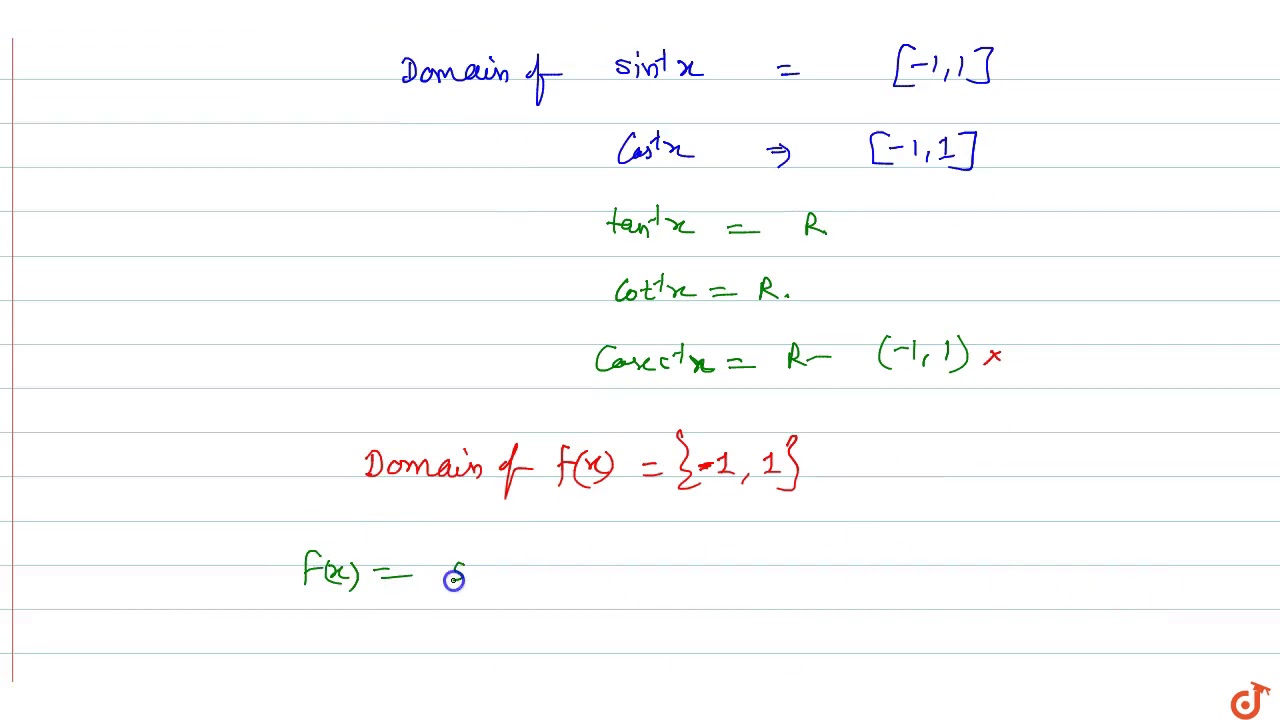 Domain of sin⁻¹x = [-1, 1]
Cos⁻¹x ⇒ [-1, 1]
tan⁻¹x = R
Cot⁻¹x = R.
Cosec⁻¹x = R - (-1, 1) ×
Domain of f(x) = {-1, 1}
f(x) = s
d